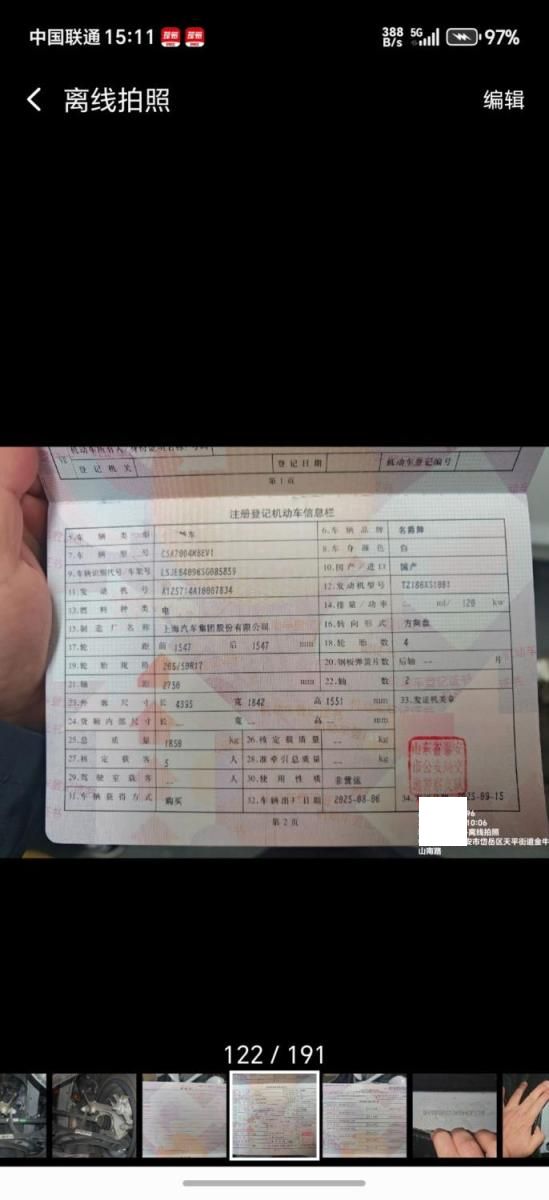 中国联通 15:11
388 B/s 5G 97%
离线拍照
编辑
登记机关
登记日期
机动车登记编号
第1页
注册登记机动车信息栏
5.车辆类型
6.车辆品牌 名爵牌
7.车辆型号
8.车身颜色 白
9.车辆识别代号/车架号
10.国产/进口 国产
11.发动机号
12.发动机型号 TZ180XS1001
13.燃料种类 电
14.排量/功率 -- ml/ 120 kw
15.制造厂名称 上海汽车集团股份有限公司
16.转向形式 方向盘
17.轮距 前 1547 后 1547 mm
18.轮胎数 4
19.轮胎规格 205/50R17
20.钢板弹簧片数 后轴 -- 片
21.轴距 2750 mm
22.轴数 2
23.外廓尺寸 长 4395 宽 1842 高 1551 mm
33.发证机关章
24.货箱内部尺寸 长 -- 宽 -- 高 -- mm
25.总质量 1850 kg
26.核定载质量 -- kg
27.核定载客 5 人
28.准牵引总质量 -- kg
29.驾驶室载客 -- 人
30.使用性质 非营运
31.车辆获得方式 购买
32.车辆出厂日期 2025-08-06
34.
25-09-15
第2页
10:06
离线拍照
安市岱岳区天平街道金牛
山南路
122 / 191